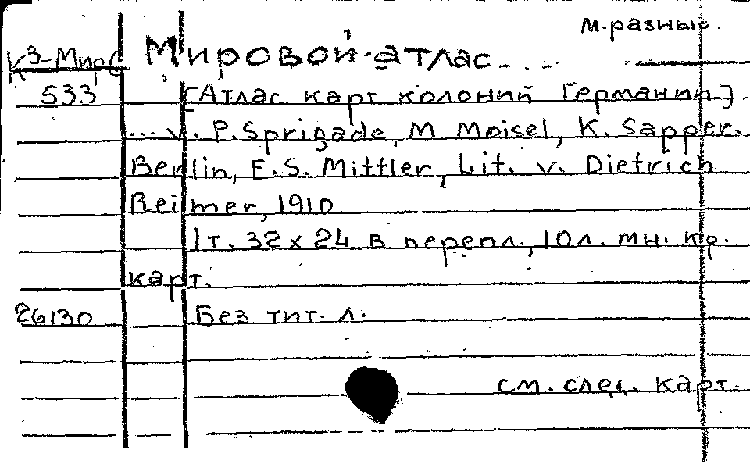 м. разныс.
К3-Мирс Мировой атлас...
533 [Атлас карт колоний Германии].
... v. P. Sprigade, M Moisel, K. Sapper.
Berlin, E. S. Mittler, Lit. v. Dietrich
Reimer, 1910
1 т. 32 x 24 в перепл., 10 л. мн. кр.
карт.
26130 Без тит. л.
см. след. карт.